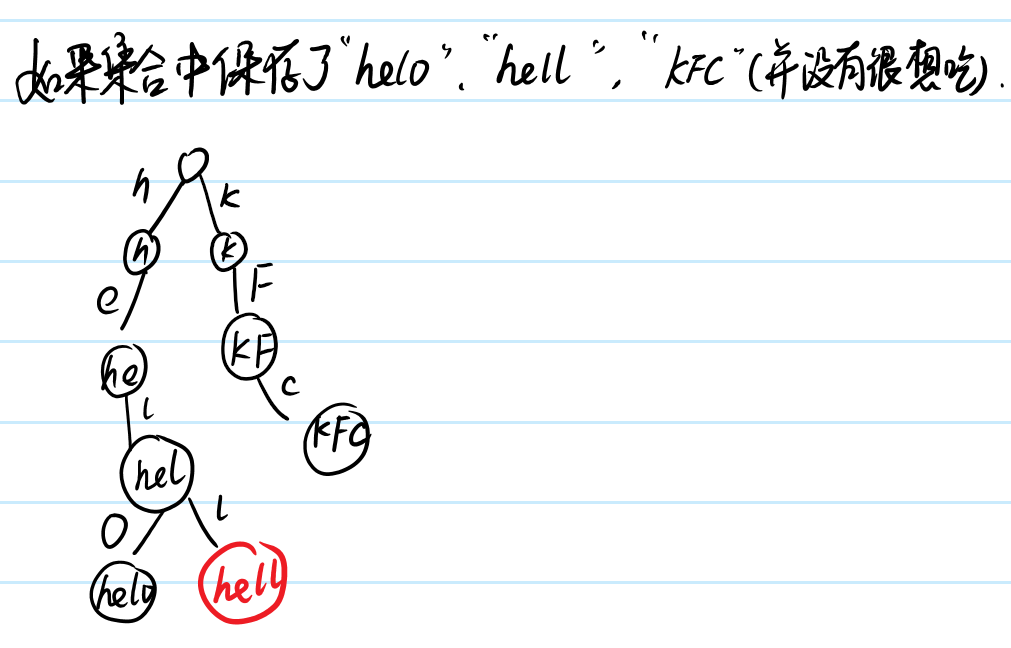 如果集合中保存了“helo”、“hell”，“KFC”(并没有很想吃).
h
k
h
k
e
F
he
KF
l
c
hel
KFC
o
l
helo
hell